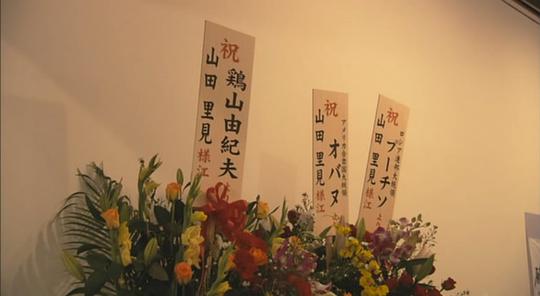 祝
鶏山由紀夫より
山田里見様江
祝
アメリカ合衆国大統領
オバヌ
山田里見様江
祝
ロシア連邦大統領
プーチソより
山田里見様江